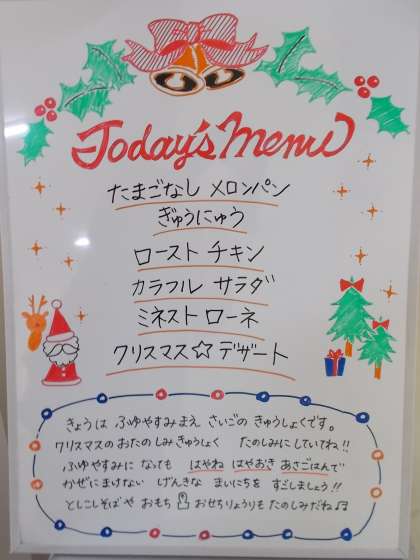 Today's Menu
たまごなし メロンパン
ぎゅうにゅう
ロースト チキン
カラフル サラダ
ミネストローネ
クリスマス☆デザート
きょうは ふゆやすみまえ さいごの きゅうしょくです。
クリスマスの おたのしみ きゅうしょく たのしみに していてね!!
ふゆやすみに なっても はやね はやおき あさごはんで
かぜに まけない げんきな まいにちを すごしましょう!!
としこしそばや おもち おせちりょうりも たのしみだね♫